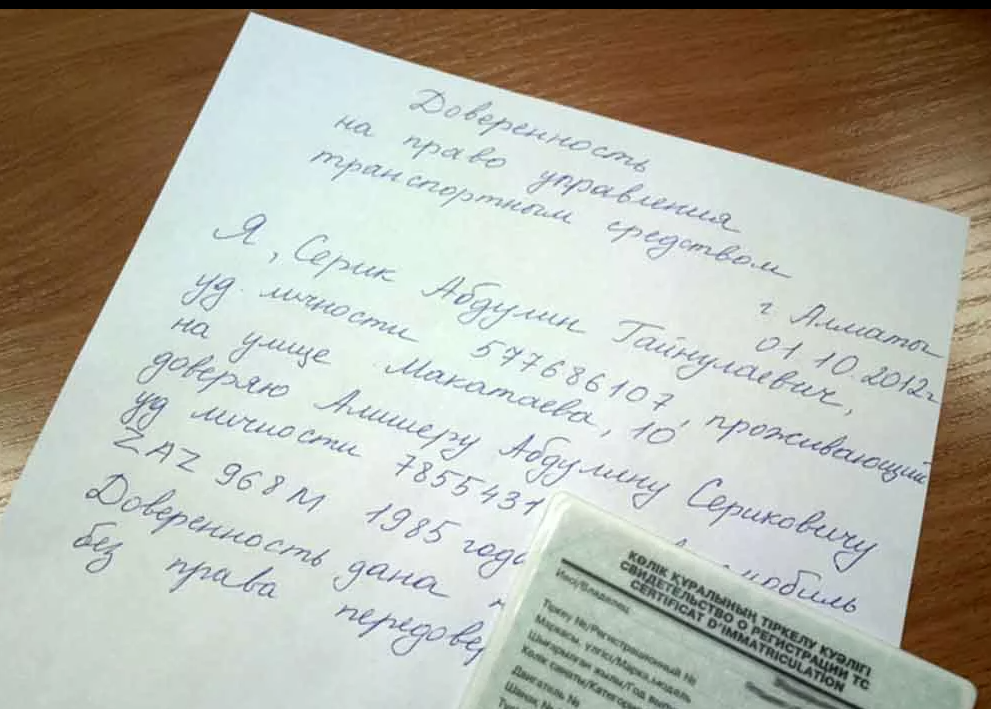 Доверенность
на право управления
транспортным средством
г. Алматы
01.10.2012г
Я, Серик Абдулин Гайнулаевич,
уд. личности 577686107, проживающий
на улице Макатаева, 10
доверяю Алишеру Абдулину Сериковичу
уд личности 7855431
ZAZ 968М 1985 года
Доверенность дана
без права передове
КӨЛІК ҚҰРАЛЫНЫҢ ТІРКЕЛУ КУӘЛІГІ
СВИДЕТЕЛЬСТВО О РЕГИСТРАЦИИ ТС
CERTIFICAT D'IMMATRICULATION
Иесі/Владелец
Тіркеу №/Регистрационный №
Маркасы, үлгісі/Марка, модель
Шығарылған жылы/Год вып
Көлік санаты/Категори
Двигатель №
Шасси №